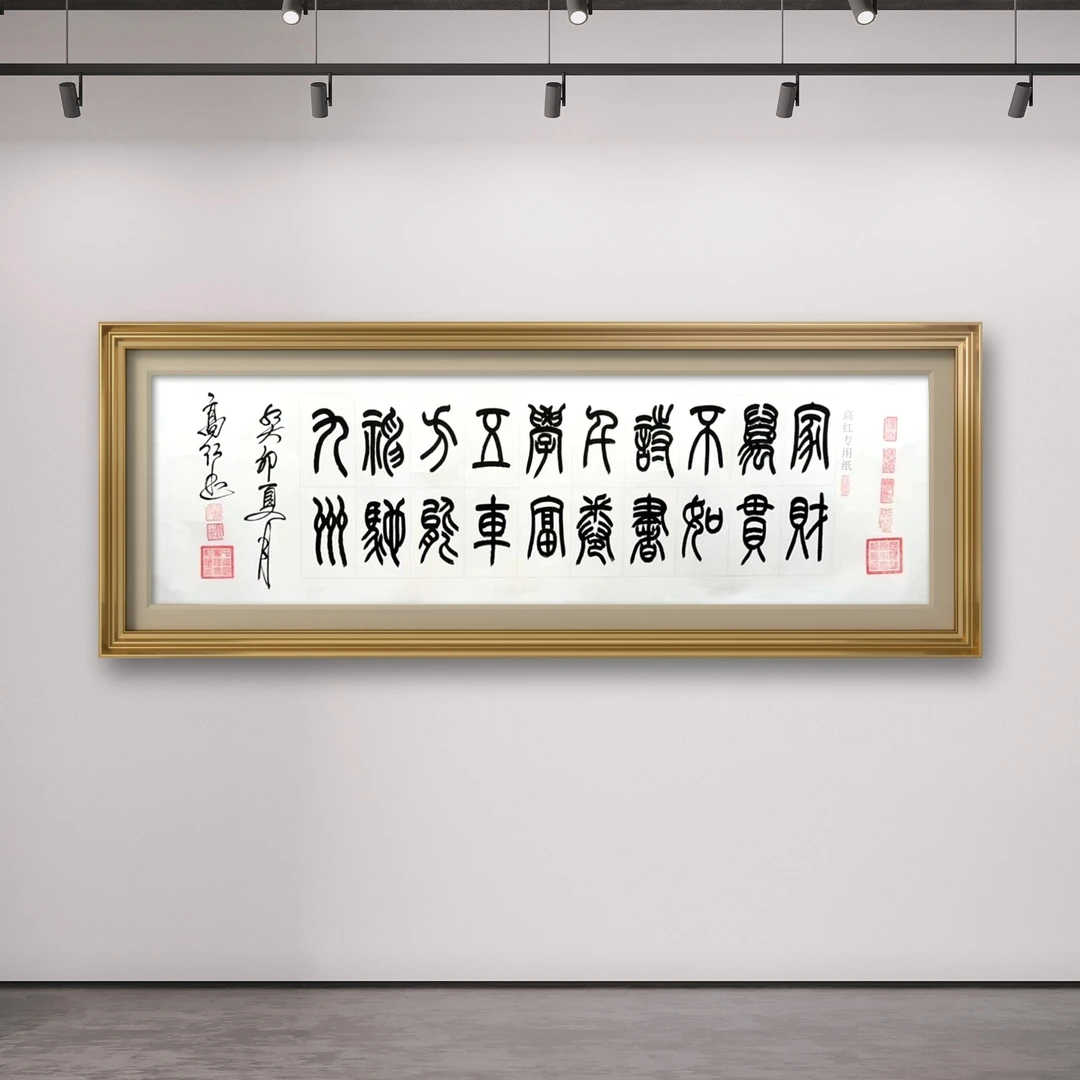 高红专用纸
家財
萬貫
不如
詩書
千卷
學富
五車
方能
神馳
九州
癸卯夏月
高红书